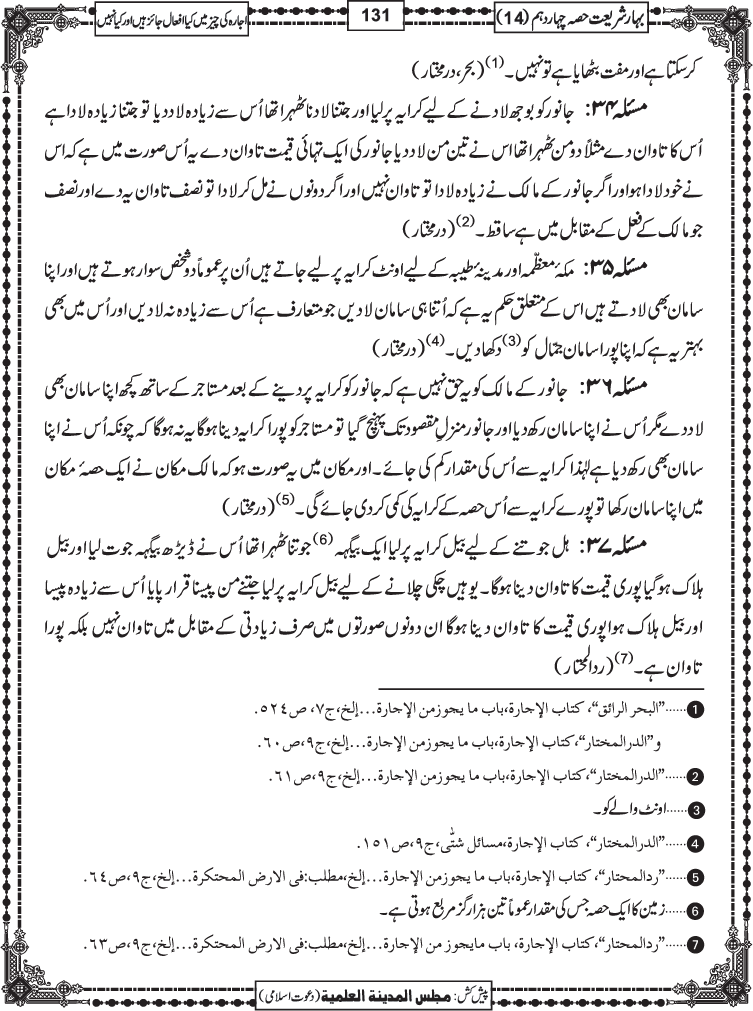 بہار شریعت حصہ چہاردہم (14)
131
اجارہ کی چیز میں کیا افعال جائز ہیں اور کیا نہیں
کرسکتا ہے اور مفت بٹھایا ہے تو نہیں۔(1) (بحر، درمختار)
مسئلہ ۳۴: جانور کو بوجھ لادنے کے لیے کرایہ پر لیا اور جتنا لادنا ٹھہرا تھا اُس سے زیادہ لاد دیا تو جتنا زیادہ لادا ہے
اُس کا تاوان دے مثلاً دومن ٹھہرا تھا اس نے تین من لاد دیا جانور کی ایک تہائی قیمت تاوان دے یہ اُس صورت میں ہے کہ اس
نے خود لادا ہو اور اگر جانور کے مالک نے زیادہ لادا تو تاوان نہیں اور اگر دونوں نے مل کر لادا تو نصف تاوان یہ دے اور نصف
جو مالک کے فعل کے مقابل میں ہے ساقط۔(2) (درمختار)
مسئلہ ۳۵: مکۂ معظّمہ اور مدینۂ طیبہ کے لیے اونٹ کرایہ پر لیے جاتے ہیں اُن پر عموماً دو شخص سوار ہوتے ہیں اور اپنا
سامان بھی لادتے ہیں اس کے متعلق حکم یہ ہے کہ اُتنا ہی سامان لادیں جو متعارف ہے اُس سے زیادہ نہ لادیں اور اُس میں بھی
بہتر یہ ہے کہ اپنا پورا سامان جمّال کو(3) دکھادیں۔(4) (درمختار)
مسئلہ ۳۶: جانور کے مالک کو یہ حق نہیں ہے کہ جانور کو کرایہ پر دینے کے بعد مستاجر کے ساتھ کچھ اپنا سامان بھی
لاد دے مگر اُس نے اپنا سامان رکھ دیا اور جانور منزلِ مقصود تک پہنچ گیا تو مستاجر کو پورا کرایہ دینا ہوگا یہ نہ ہوگا کہ چونکہ اُس نے اپنا
سامان بھی رکھ دیا ہے لہٰذا کرایہ سے اُس کی مقدار کم کی جائے۔ اور مکان میں یہ صورت ہو کہ مالک مکان نے ایک حصۂ مکان
میں اپنا سامان رکھا تو پورے کرایہ سے اُس حصہ کے کرایہ کی کمی کردی جائے گی۔(5) (درمختار)
مسئلہ ۳۷: ہل جوتنے کے لیے بیل کرایہ پر لیا ایک بیگہہ(6) جوتنا ٹھہرا تھا اُس نے ڈیڑھ بیگہہ جوت لیا اور بیل
ہلاک ہوگیا پوری قیمت کا تاوان دینا ہوگا۔ یوہیں چکی چلانے کے لیے بیل کرایہ پر لیا جتنے من پیسنا قرار پایا اُس سے زیادہ پیسا
اور بیل ہلاک ہوا پوری قیمت کا تاوان دینا ہوگا ان دونوں صورتوں میں صرف زیادتی کے مقابل میں تاوان نہیں بلکہ پورا
تاوان ہے۔(7) (ردالمحتار)
1......"البحر الرائق"، کتاب الإجارة،باب ما یجوز من الإجارة...إلخ،ج۷، ص۵۲٤.
و"الدرالمختار"،کتاب الإجارة،باب ما یجوز من الإجارة...إلخ،ج۹،ص٦۰.
2......"الدرالمختار"،کتاب الإجارة،باب ما یجوز من الإجارة...إلخ،ج۹،ص٦۱.
3......اونٹ والے کو۔
4......"الدرالمختار"، کتاب الإجارة،مسائل شتّٰی،ج۹،ص۱۵۱.
5......"ردالمحتار"، کتاب الإجارة،باب ما یجوز من الإجارة...إلخ،مطلب:فی الارض المحتکرة...إلخ،ج۹،ص٦٤.
6......زمین کا ایک حصہ جس کی مقدار عموماً تین ہزار گز مربع ہوتی ہے۔
7......"ردالمحتار"،کتاب الإجارة، باب مایجوز من الإجارة...إلخ،مطلب:فی الارض المحتکرة...إلخ،ج۹،ص٦۳.
پیش کش: مجلس المدینة العلمیة (دعوت اسلامی)